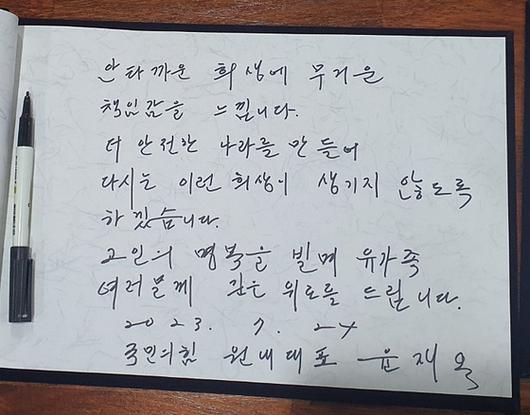 안타까운 희생에 무거운
책임감을 느낍니다.
더 안전한 나라를 만들어
다시는 이런 희생이 생기지 않도록
하겠습니다.
고인의 명복을 빌며 유가족
여러분께 깊은 위로를 드립니다.
2023. 7. 24
국민의힘 원내대표 윤재옥